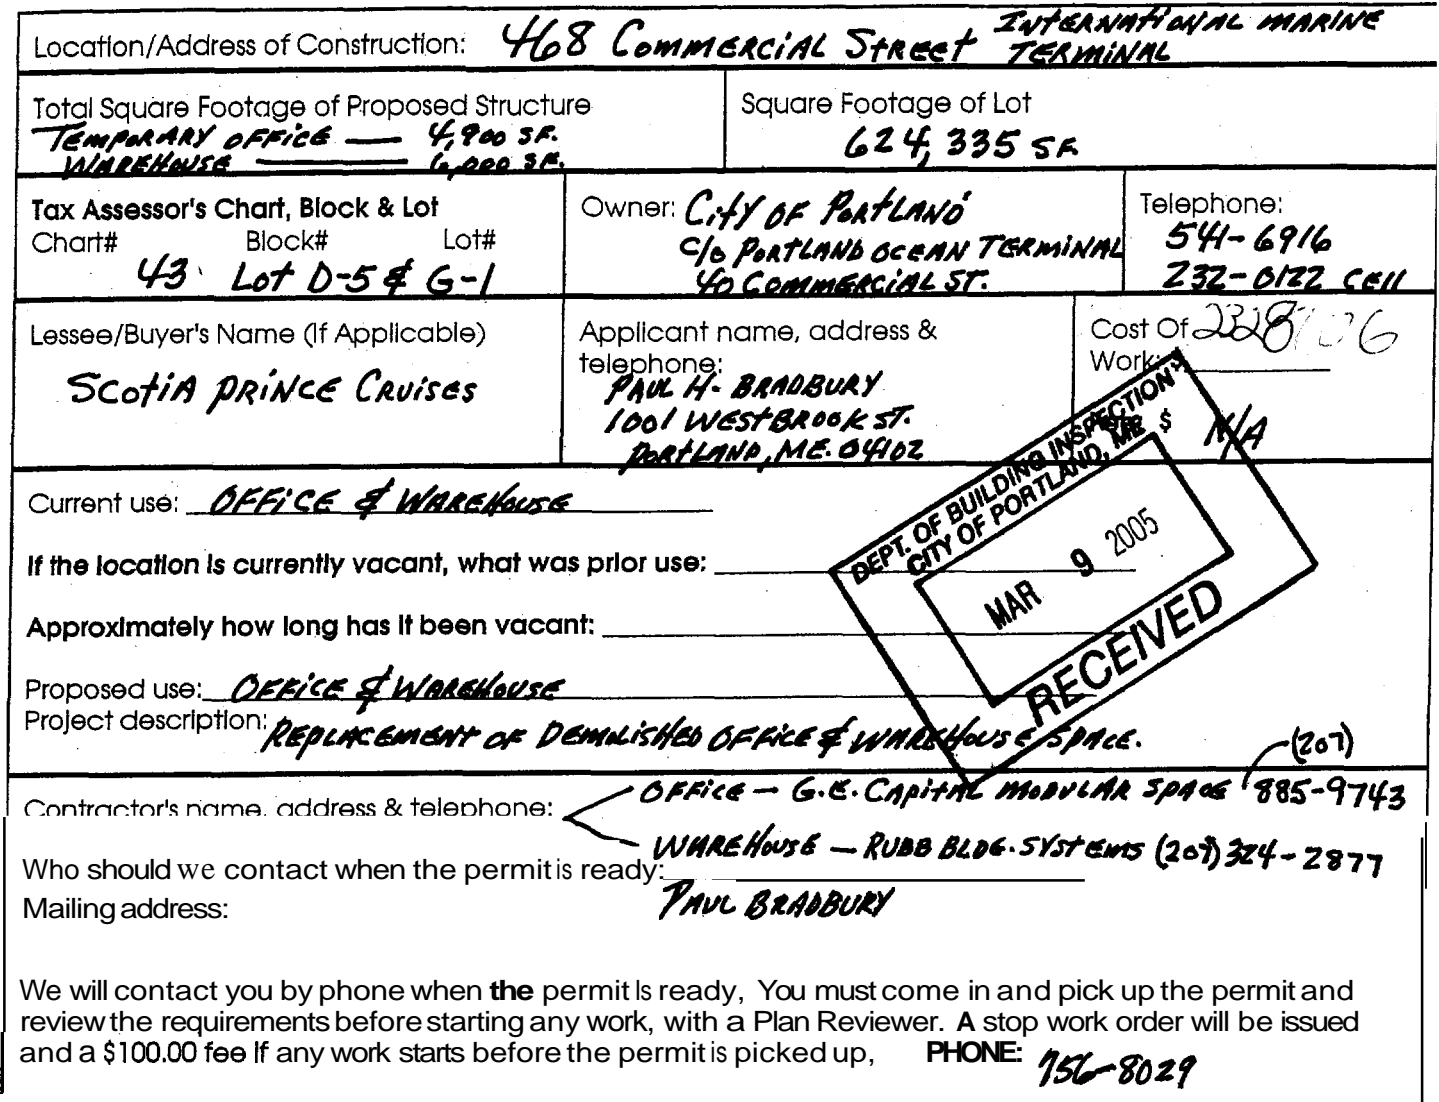 Location/Address of Construction: 468 Commercial Street International Marine Terminal
Total Square Footage of Proposed Structure
Temporary Office — 4,900 SF.
Warehouse — 6,000 SF.
Square Footage of Lot
624,335 SF
Tax Assessor's Chart, Block & Lot
Chart# Block# Lot#
43 Lot D-5 & G-1
Owner: City of Portland
c/o Portland Ocean Terminal
40 Commercial St.
Telephone:
541-6916
232-0122 cell
Lessee/Buyer's Name (If Applicable)
Scotia Prince Cruises
Applicant name, address &
telephone:
Paul H. Bradbury
1001 Westbrook St.
Portland, ME. 04102
Cost Of
Work:
$ N/A
Current use: Office & Warehouse
If the location is currently vacant, what was prior use:
Approximately how long has it been vacant:
Proposed use: Office & Warehouse
Project description: Replacement of Demolished Office & Warehouse Space.
DEPT. OF BUILDING INSPECTION
CITY OF PORTLAND, ME
MAR 9 2005
RECEIVED
Contractor's name, address & telephone:
Office — G.E. Capital Modular Space (207) 885-9743
Warehouse — Rubb Bldg. Systems (207) 324-2877
Who should we contact when the permit is ready:
Paul Bradbury
Mailing address:
We will contact you by phone when the permit is ready, You must come in and pick up the permit and
review the requirements before starting any work, with a Plan Reviewer. A stop work order will be issued
and a $100.00 fee if any work starts before the permit is picked up, PHONE: 756-8029